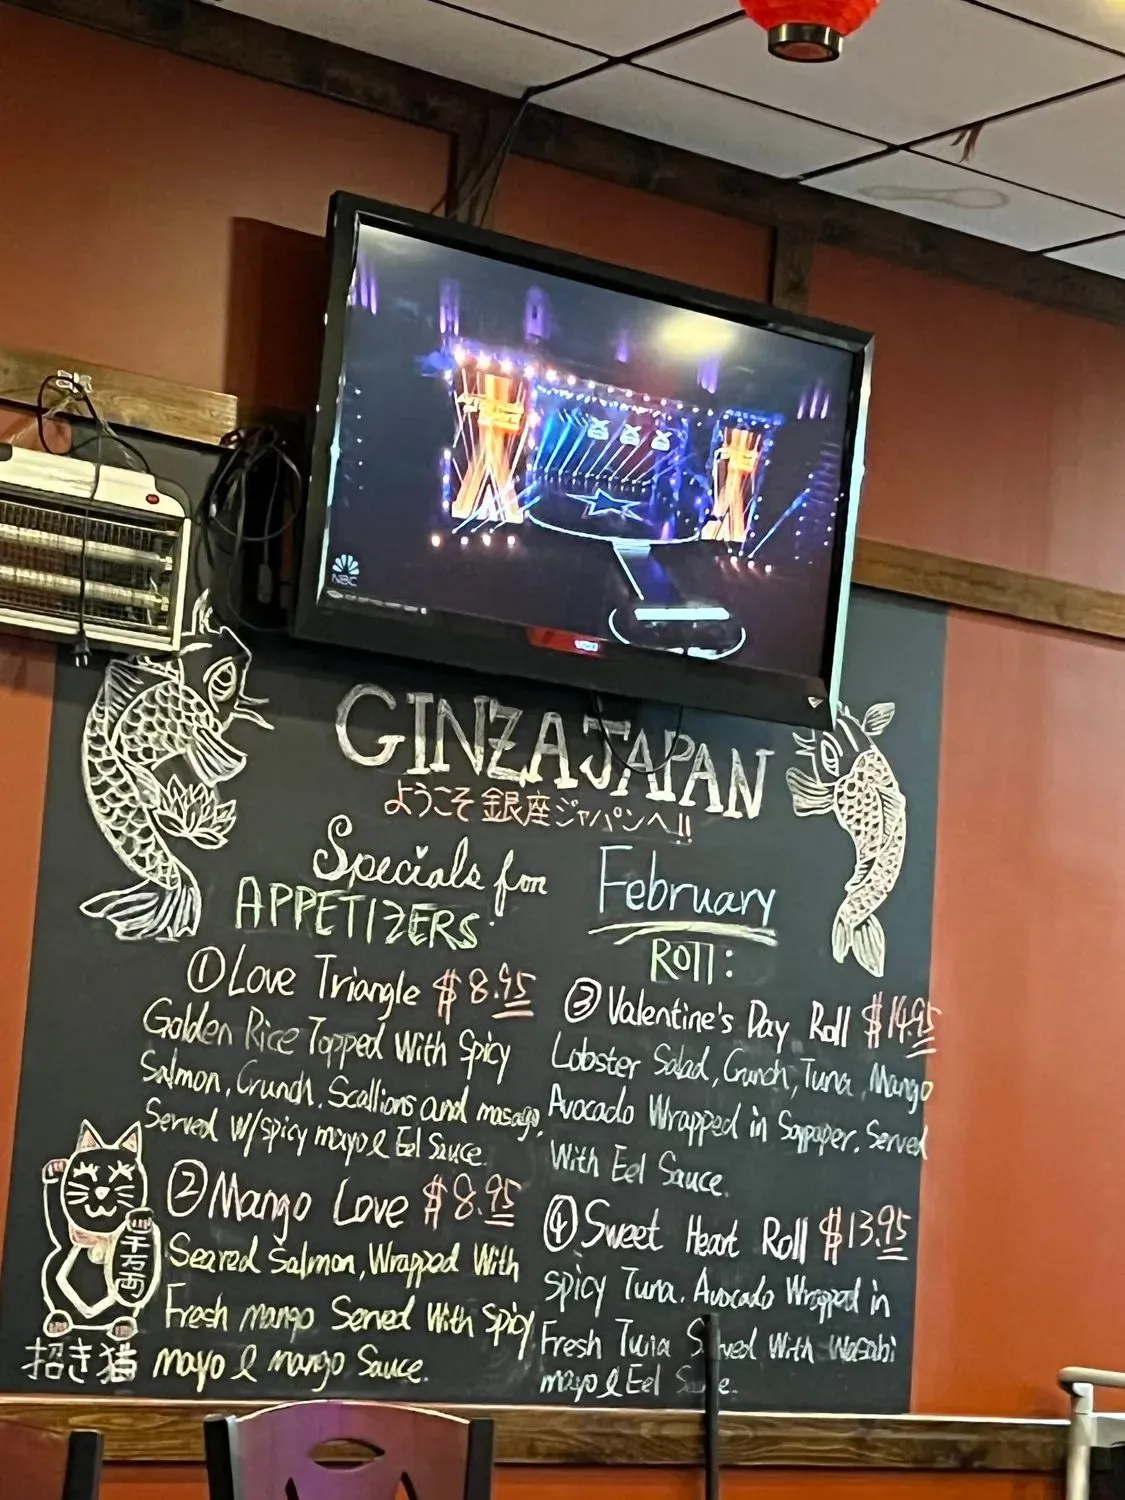 NBC
VIZIO
GINZA JAPAN
ようこそ 銀座ジャパンへ!!
Specials for February
APPETIZERS:
① Love Triangle $8.95
Golden Rice Topped With Spicy
Salmon, Crunch, Scallions and masago,
Served w/spicy mayo & Eel Sauce.
② Mango Love $8.95
Seared Salmon, Wrapped With
Fresh mango Served With Spicy
mayo & mango Sauce.
ROll:
③ Valentine's Day Roll $14.95
Lobster Salad, Crunch, Tuna, Mango
Avocado Wrapped in Soypaper, Served
With Eel Sauce.
④ Sweet Heart Roll $13.95
Spicy Tuna, Avocado Wrapped in
Fresh Tuna Served With Wasabi
mayo & Eel Sauce.
千万両
招き猫